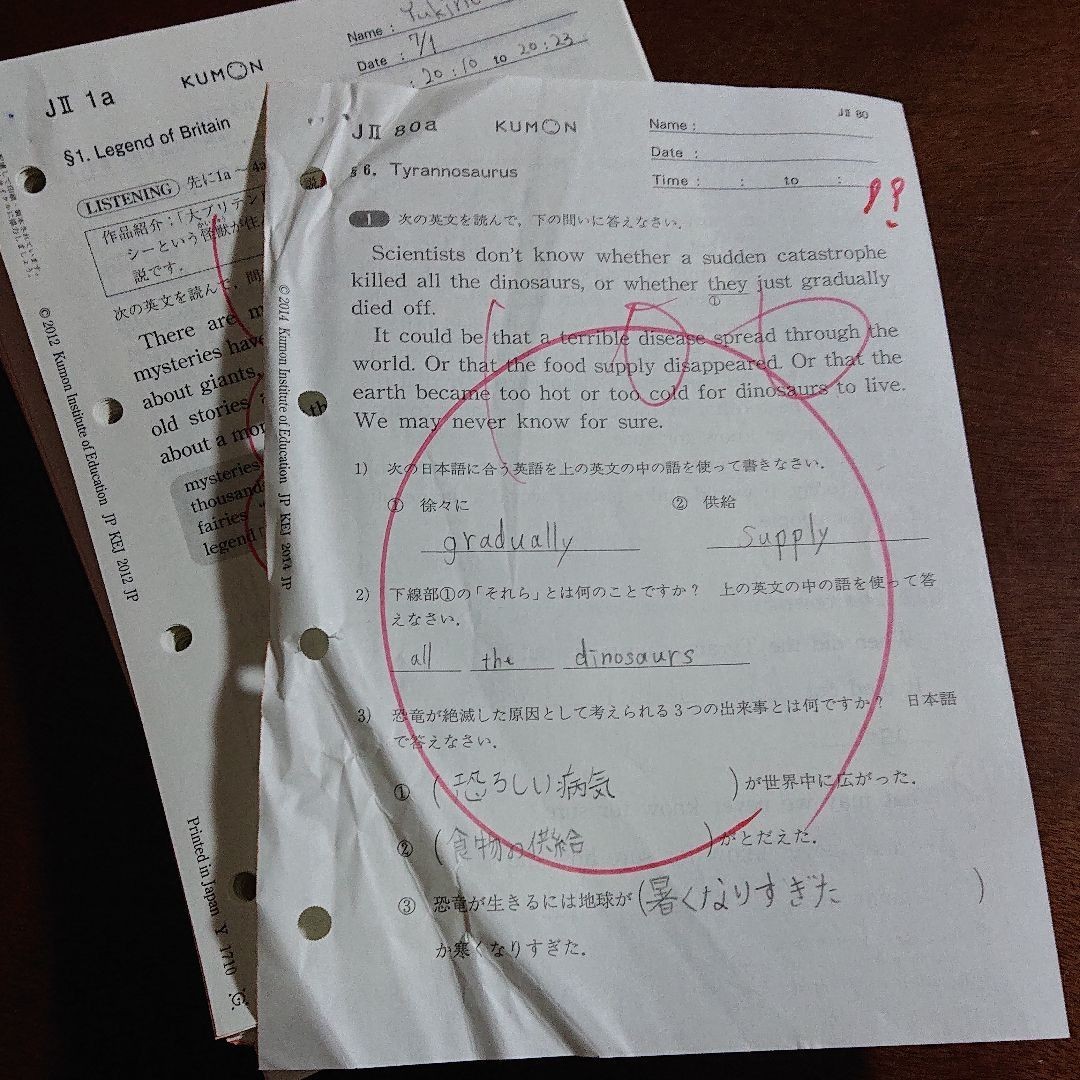 Name :
Date : 7/1
: 20:10 to 20:23
KUMON
JⅡ 1a
§1. Legend of Britain
LISTENING 先に1a ~ 4a
作品紹介:「大ブリテン
シーという怪獣が住
説です.
次の英文を読んで, 問
There are m
mysteries have
about giants,
old stories
about a mon
mysteries
thousand
fairies
legend
© 2012 Kumon Institute of Education JP KEI 2012 JP
Printed in Japan Y 1710
JⅡ 80
JⅡ 80a KUMON
Name :
Date :
Time : : to :
§6. Tyrannosaurus
1 次の英文を読んで, 下の問いに答えなさい.
Scientists don't know whether a sudden catastrophe
killed all the dinosaurs, or whether they just gradually
①
died off.
It could be that a terrible disease spread through the
world. Or that the food supply disappeared. Or that the
earth became too hot or too cold for dinosaurs to live.
We may never know for sure.
100
1) 次の日本語に合う英語を上の英文の中の語を使って書きなさい.
① 徐々に ② 供給
gradually supply
2) 下線部①の「それら」とは何のことですか? 上の英文の中の語を使って答
えなさい.
all the dinosaurs
3) 恐竜が絶滅した原因として考えられる3つの出来事とは何ですか? 日本語
で答えなさい.
① (恐ろしい病気 )が世界中に広がった.
② (食物の供給 )がとだえた.
③ 恐竜が生きるには地球が(暑くなりすぎた )
か寒くなりすぎた.
© 2014 Kumon Institute of Education JP KEI 2014 JP